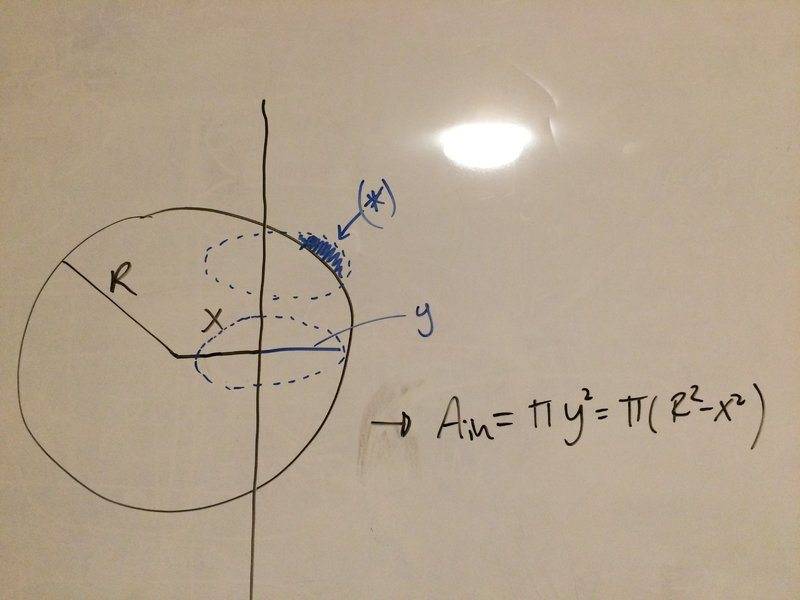 (*)
R
X
y
→ Ain = πy² = π(R²-x²)